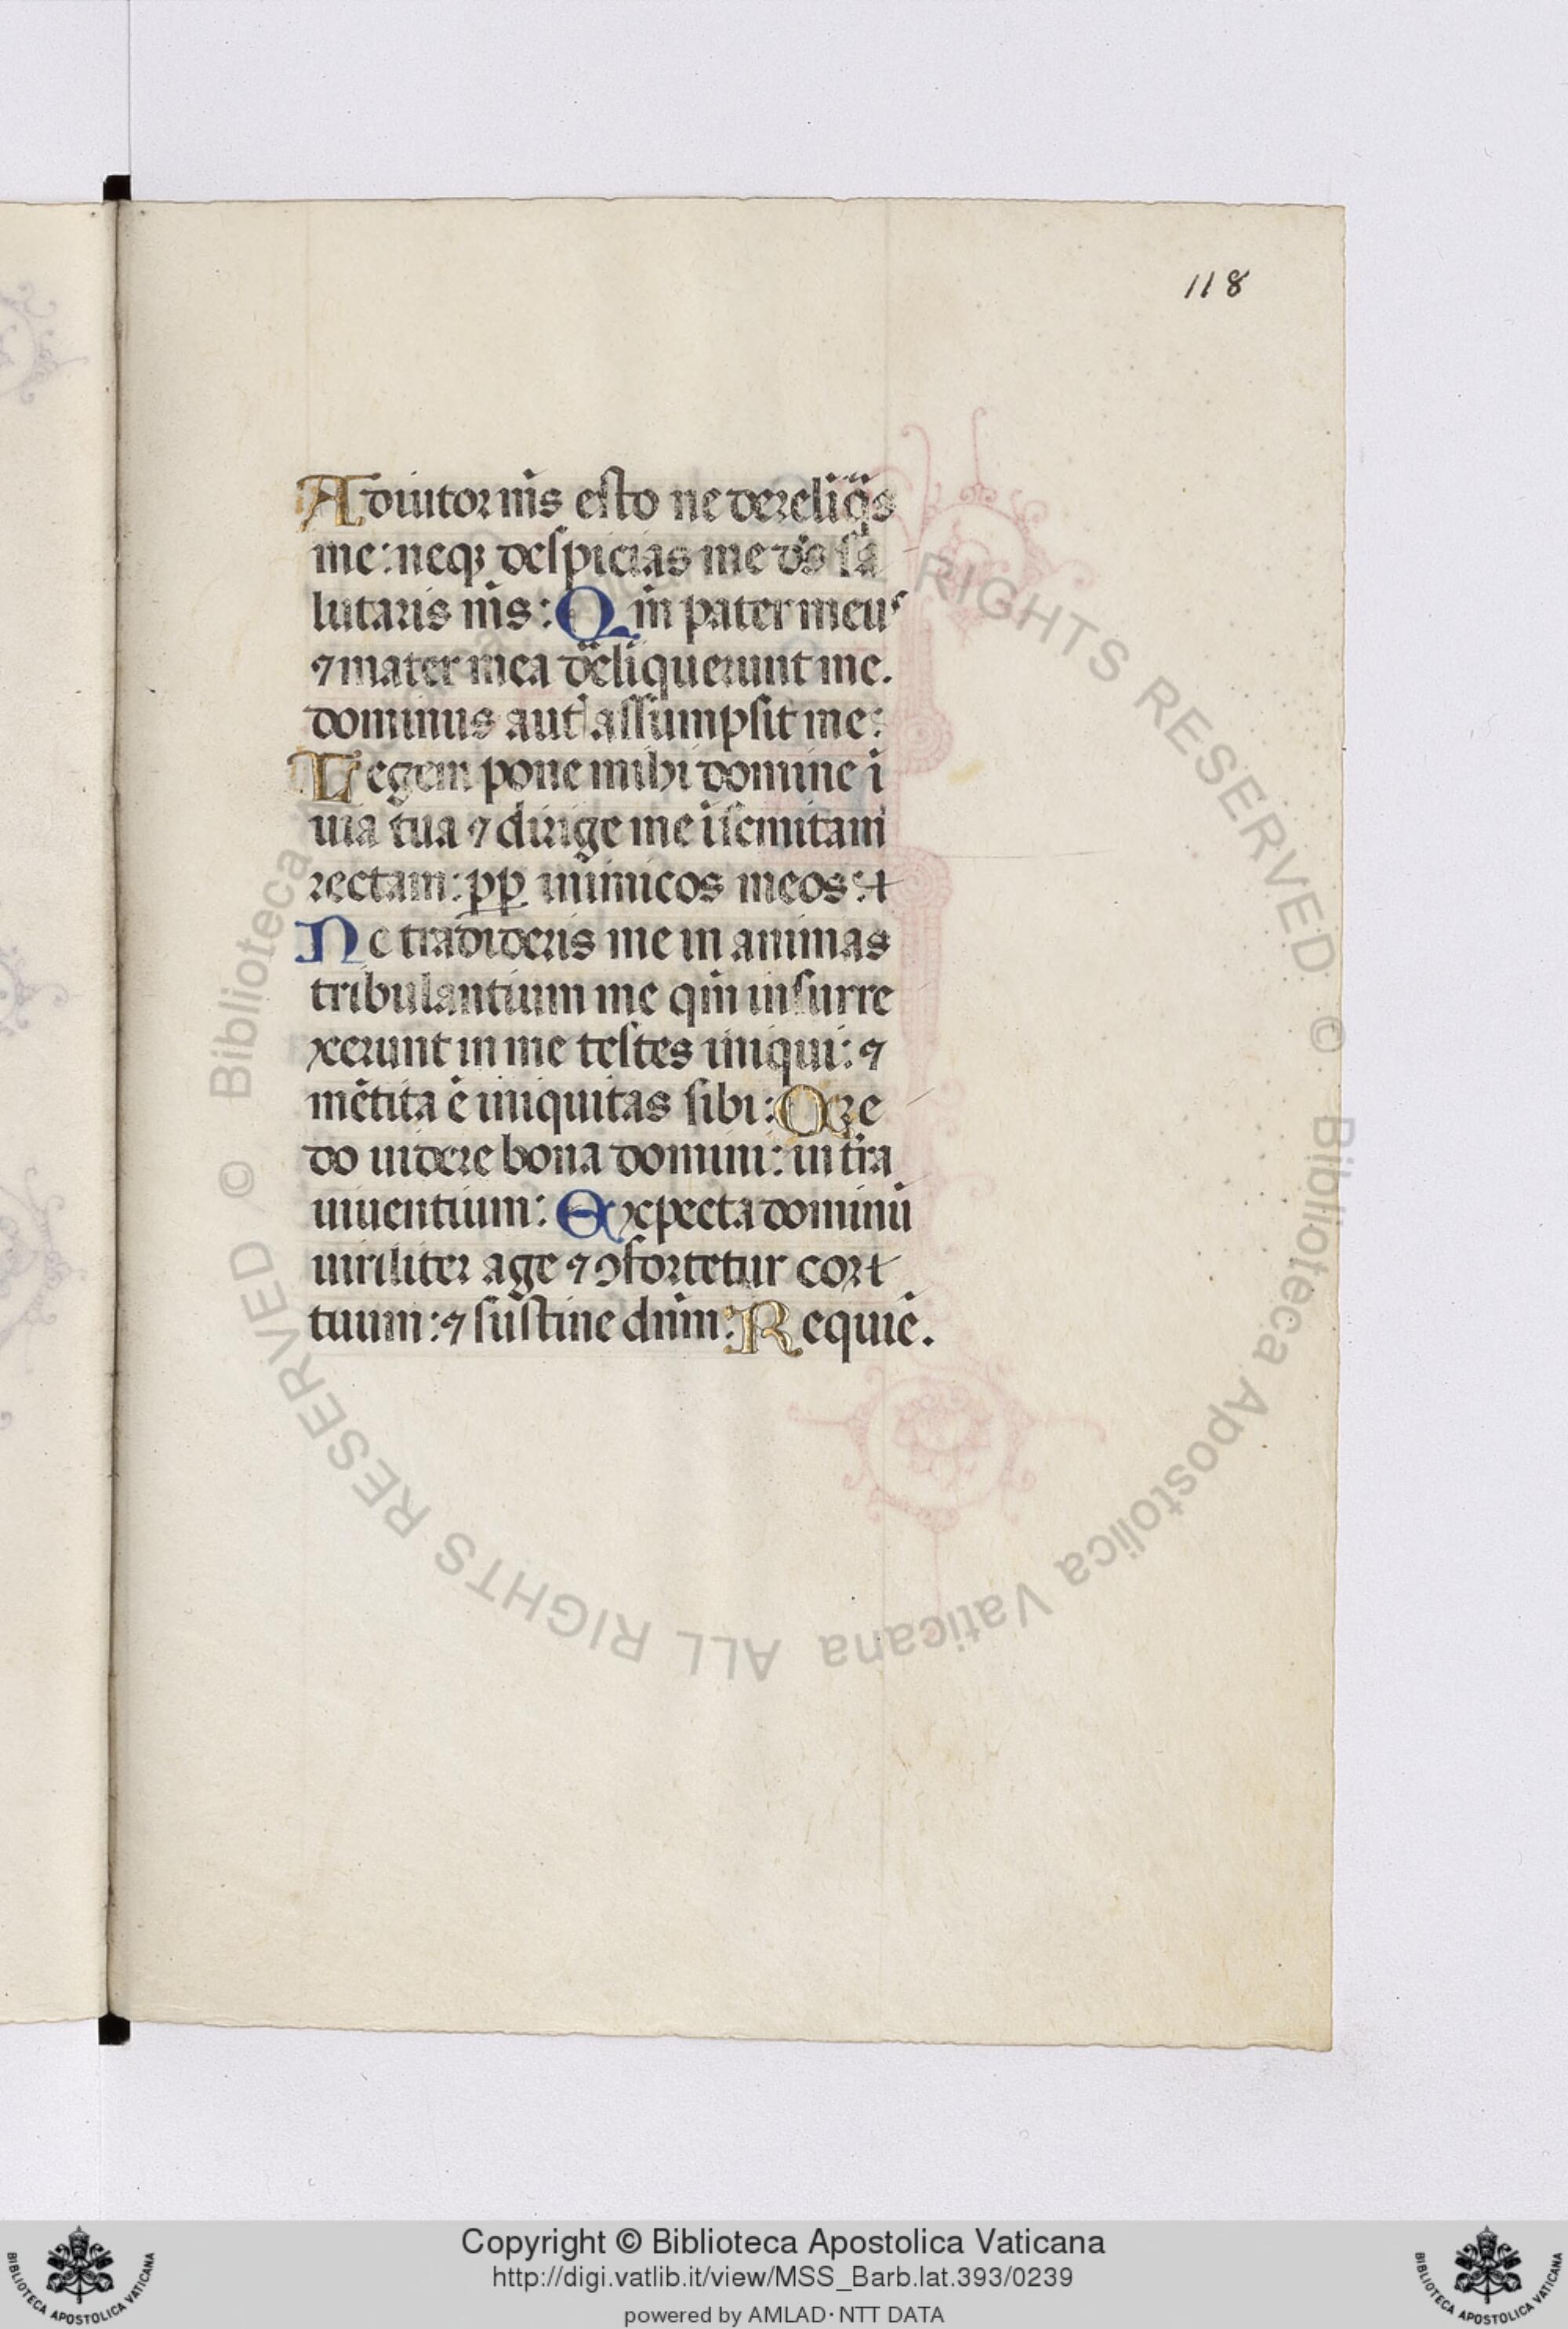 118
Adiutor m̅s esto ne dereliq̅s
me: neqꝫ despicias me d̅s sa
lutaris m̅s: Qm̅ pater meus
⁊ mater mea de̅liquerunt me.
dominus aut̅ assumpsit me:
Legem pone mihi domine ı̅
uia tua ⁊ dirige me ı̅ semitam
rectam: ꝓp̱ inimicos meos:
Ne tradideris me in animas
tribulantium me qm̅ insurre
xerunt in me testes iniqui: ⁊
me̅tita e̅ iniquitas sibi: Cre
do uidere bona domini: in t̅ra
uiuentium: Expecta dominu̅
uiriliter age ⁊ ꝯfortetur cor
tuum: ⁊ sustine dn̅m: Requie̅.
© Biblioteca Apostolica Vaticana ALL RIGHTS RESERVED © Biblioteca
RIGHTS RESERVED
Copyright © Biblioteca Apostolica Vaticana
http://digi.vatlib.it/view/MSS_Barb.lat.393/0239
powered by AMLAD·NTT DATA
BIBLIOTECA APOSTOLICA VATICANA
BIBLIOTECA APOSTOLICA VATICANA